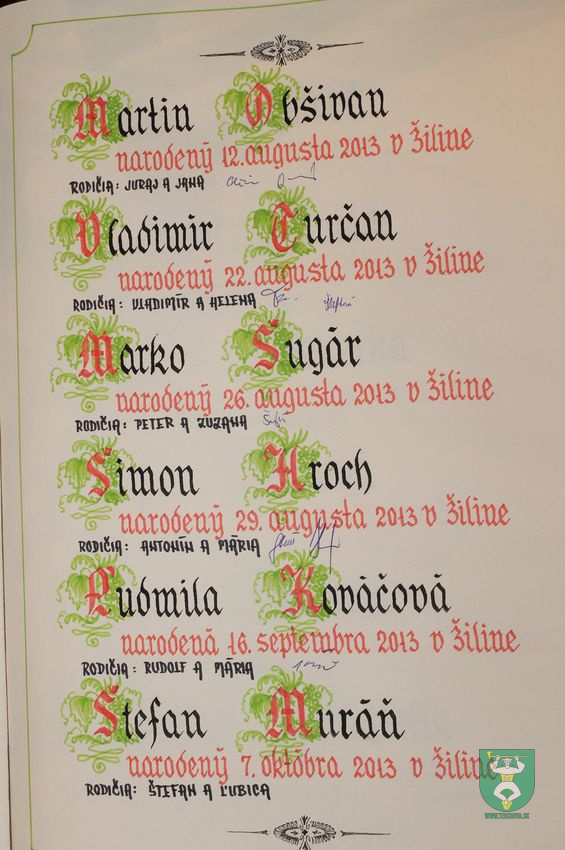 Martin Obšivan
narodený 12. augusta 2013 v Žiline
RODIČIA: JURAJ A JANA
Vladimír Ťurčan
narodený 22. augusta 2013 v Žiline
RODIČIA: VLADIMÍR A HELENA
Marko Sugár
narodený 26. augusta 2013 v Žiline
RODIČIA: PETER A ZUZANA
Šimon Hroch
narodený 29. augusta 2013 v Žiline
RODIČIA: ANTONÍN A MÁRIA
Ľudmila Kováčová
narodená 16. septembra 2013 v Žiline
RODIČIA: RUDOLF A MÁRIA
Štefan Muráň
narodený 7. októbra 2013 v Žiline
RODIČIA: ŠTEFAN A ĽUBICA
WWW.TERCHOVA.SK